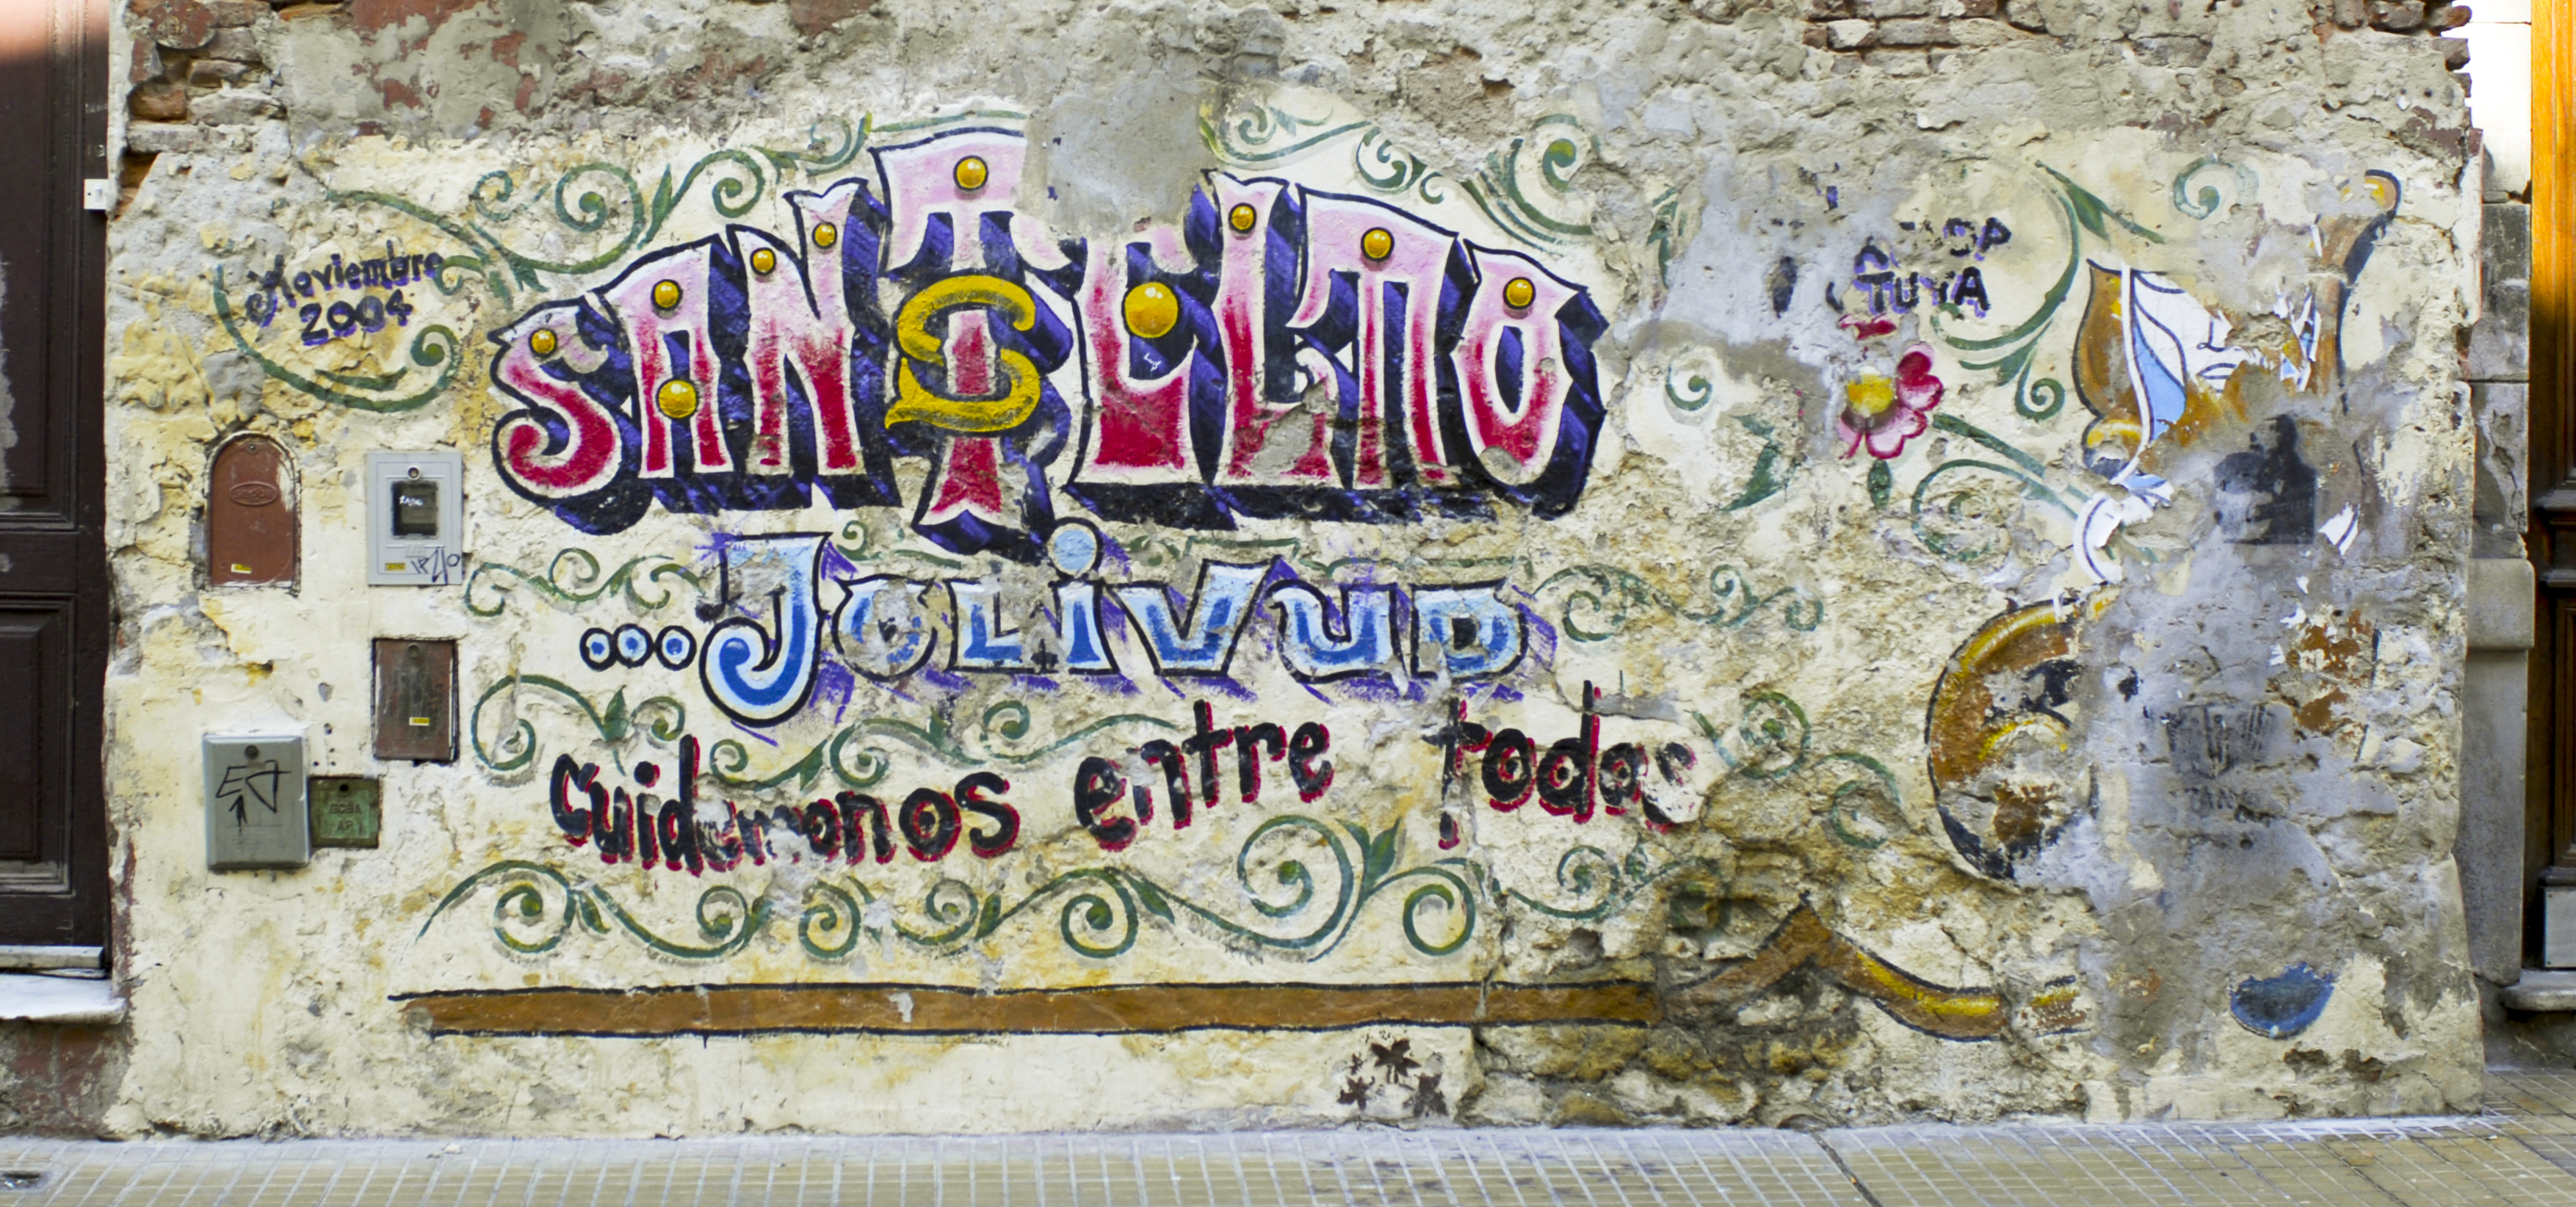 Noviembre
2004
SAN TELMO
...JOLIVUD
Cuidemonos entre todos
TUYA
GCBA
AP